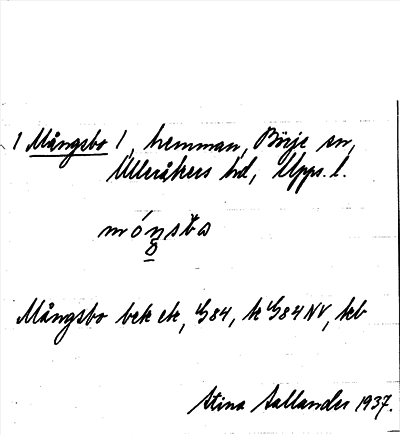 1 Mångsbo 1, hemman, Börje sn,
Ulleråkers hd, Upps. l.
Mångsbo bek ek, G84, k G84NV, kb
Stina Sallander 1937.